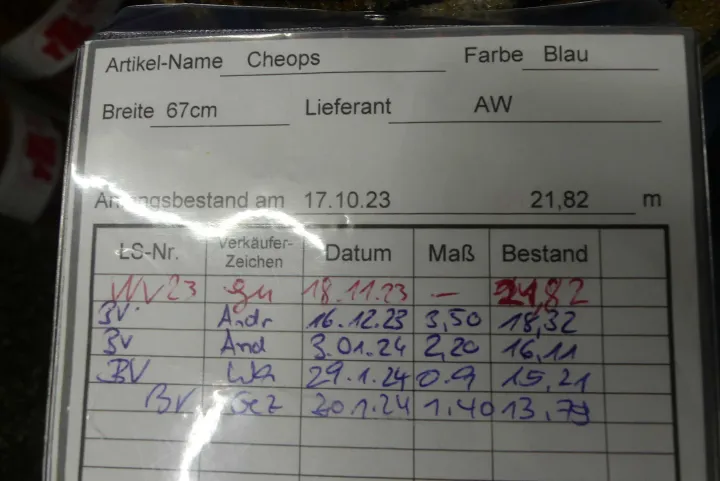 Artikel-Name Cheops Farbe Blau
Breite 67cm Lieferant AW
Anfangsbestand am 17.10.23 21,82 m
LS-Nr. Verkäufer-Zeichen Datum Maß Bestand
18.11.23 — 21,82
BV Andr 16.12.23 3,50 18,32
BV And 3.01.24 2,20 16,11
BV 29.1.24 0.9 15,21
BV Gez 1.24 1.40